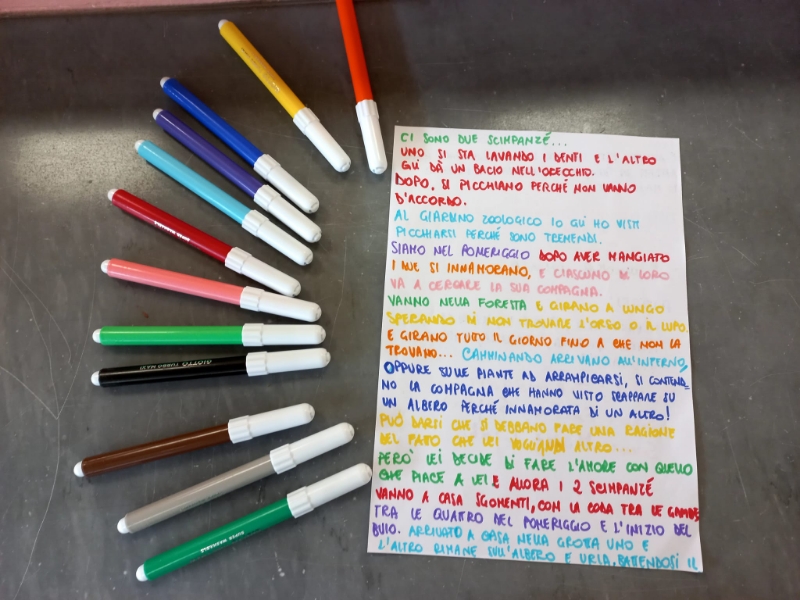 CI SONO DUE SCIMPANZÉ...
UNO SI STA LAVANDO I DENTI E L'ALTRO
GLI DÀ UN BACIO NELL'ORECCHIO.
DOPO, SI PICCHIANO PERCHÉ NON VANNO
D'ACCORDO.
AL GIARDINO ZOOLOGICO IO GLI HO VISTI
PICCHIARSI PERCHÉ SONO TREMENDI.
SIAMO NEL POMERIGGIO DOPO AVER MANGIATO
I DUE SI INNAMORANO, E CIASCUNO DI LORO
VA A CERCARE LA SUA COMPAGNA.
VANNO NELLA FORESTA E GIRANO A LUNGO
SPERANDO DI NON TROVARE L'ORSO O IL LUPO.
E GIRANO TUTTO IL GIORNO FINO A CHE NON LA
TROVANO... CAMMINANDO ARRIVANO ALL'INFERNO,
OPPURE SULLE PIANTE AD ARRAMPICARSI, SI CONTENDO-
NO LA COMPAGNA CHE HANNO VISTO SCAPPARE SU
UN ALBERO PERCHÉ INNAMORATA DI UN ALTRO!
PUÒ DARSI CHE SI DEBBANO FARE UNA RAGIONE
DEL FATTO CHE LEI VOGLIA ALTRO...
PERÒ LEI DECIDE DI FARE L'AMORE CON QUELLO
CHE PIACE A LEI E ALLORA I 2 SCIMPANZÉ
VANNO A CASA SGOMENTI, CON LA CODA TRA LE GAMBE
TRA LE QUATTRO DEL POMERIGGIO E L'INIZIO DEL
BUIO. ARRIVATO A CASA NELLA GROTTA UNO E
L'ALTRO RIMANE SULL'ALBERO E URLA, BATTENDOSI IL
GIOTTO TURBO MAXI